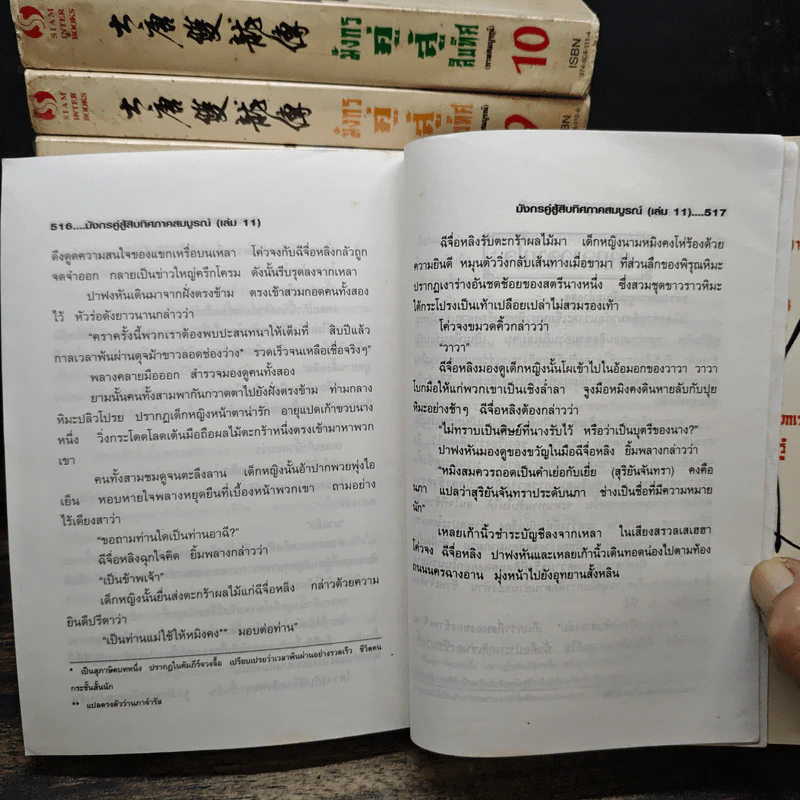 SIAM INTER BOOKS
大唐雙龍傳
มังกรคู่สู้สิบทิศ
(ภาคสมบูรณ์)
10
ISBN
SIAM INTER BOOKS
大唐雙龍傳
มังกรคู่สู้สิบทิศ
(ภาคสมบูรณ์)
ISBN
516....มังกรคู่สู้สิบทิศภาคสมบูรณ์ (เล่ม 11)
ดึงดูดความสนใจของแขกเหรื่อบนเหลา โค่วจงกับฉีจื่อหลิงกลัวถูก
จดจำออก กลายเป็นข่าวใหญ่ครึกโครม ดังนั้นรีบรุดลงจากเหลา
ปาฟงหันเดินมาจากฝั่งตรงข้าม ตรงเข้าสวมกอดคนทั้งสอง
ไว้ หัวร่อดังยาวนานกล่าวว่า
"คราครั้งนี้พวกเราต้องพบปะสนทนาให้เต็มที่ สิบปีแล้ว
กาลเวลาพ้นผ่านดุจม้าขาวลอดช่องว่าง* รวดเร็วจนเหลือเชื่อจริงๆ"
พลางคลายมือออก สำรวจมองดูคนทั้งสอง
ยามนั้นคนทั้งสามพากันกวาดตาไปยังฝั่งตรงข้าม ท่ามกลาง
หิมะปลิวโปรย ปรากฏเด็กหญิงหน้าตาน่ารัก อายุแปดเก้าขวบนาง
หนึ่ง วิ่งกระโดดโลดเต้นมือถือผลไม้ตะกร้าหนึ่งตรงเข้ามาหาพวก
เขา
คนทั้งสามชมดูจนตะลึงลาน เด็กหญิงนั้นอ้าปากพวยพุ่งไอ
เย็น หอบหายใจพลางหยุดยืนที่เบื้องหน้าพวกเขา ถามอย่าง
ไร้เดียงสาว่า
"ขอถามท่านใดเป็นท่านอาฉี?"
ฉีจื่อหลิงฉุกใจคิด ยิ้มพลางกล่าวว่า
"เป็นข้าพเจ้า"
เด็กหญิงนั้นยื่นส่งตะกร้าผลไม้แก่ฉีจื่อหลิง กล่าวด้วยความ
ยินดีปรีดาว่า
"เป็นท่านแม่ใช้ให้หมิงคง** มอบต่อท่าน"
* เป็นสุภาษิตบทหนึ่ง ปรากฏในคัมภีร์จวงจื้อ เปรียบเปรยว่าเวลาพ้นผ่านอย่างรวดเร็ว ชีวิตคน
กระชั้นสั้นนัก
** แปลตรงตัวว่านภาจำรัส
มังกรคู่สู้สิบทิศภาคสมบูรณ์ (เล่ม 11)....517
ฉีจื่อหลิงรับตะกร้าผลไม้มา เด็กหญิงนามหมิงคงโห่ร้องด้วย
ความยินดี หมุนตัววิ่งกลับเส้นทางเมื่อขามา ที่ส่วนลึกของพิรุณหิมะ
ปรากฏเงาร่างอันชดช้อยของสตรีนางหนึ่ง ซึ่งสวมชุดขาวราวหิมะ
ใต้กระโปรงเป็นเท้าเปลือยเปล่าไม่สวมรองเท้า
โค่วจงขมวดคิ้วกล่าวว่า
"วาวา"
ฉีจื่อหลิงมองดูเด็กหญิงนั้นโผเข้าไปในอ้อมอกของวาวา วาวา
โบกมือให้แก่พวกเขาเป็นเชิงล่ำลา จูงมือหมิงคงเดินหายลับกับปุย
หิมะอย่างช้าๆ ฉีจื่อหลิงต้องกล่าวว่า
"ไม่ทราบเป็นศิษย์ที่นางรับไว้ หรือว่าเป็นบุตรีของนาง?"
ปาฟงหันมองดูของขวัญในมือฉีจื่อหลิง ยิ้มพลางกล่าวว่า
"หมิงสมควรถอดเป็นคำเย่อกับเยี่ย (สุริยันจันทรา) คงคือ
นภา แปลว่าสุริยันจันทราประดับนภา ช่างเป็นชื่อที่มีความหมาย
นัก"
เหลยเก้านิ้วชำระบัญชีลงจากเหลา ในเสียงสรวลเสเฮฮา
โค่วจง ฉีจื่อหลิง ปาฟงหันและเหลยเก้านิ้วเดินทอดน่องไปตามท้อง
ถนนนครฉางอาน มุ่งหน้าไปยังอุทยานสั้งหลิน